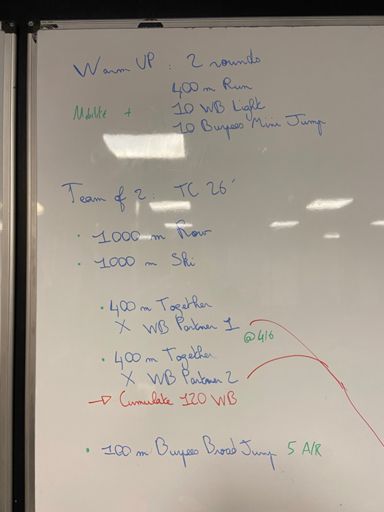 Warm UP : 2 rounds
400 m Run
Mobilité + 10 WB Light
10 Burpees Mini Jump
Team of 2 : TC 26'
• 1000 m Row
• 1000 m Ski
• 400 m Together
X WB Partner 1
@4/6
• 400 m Together
X WB Partner 2
→ Cumulate 120 WB
• 100 m Burpees Broad Jump 5 A/R